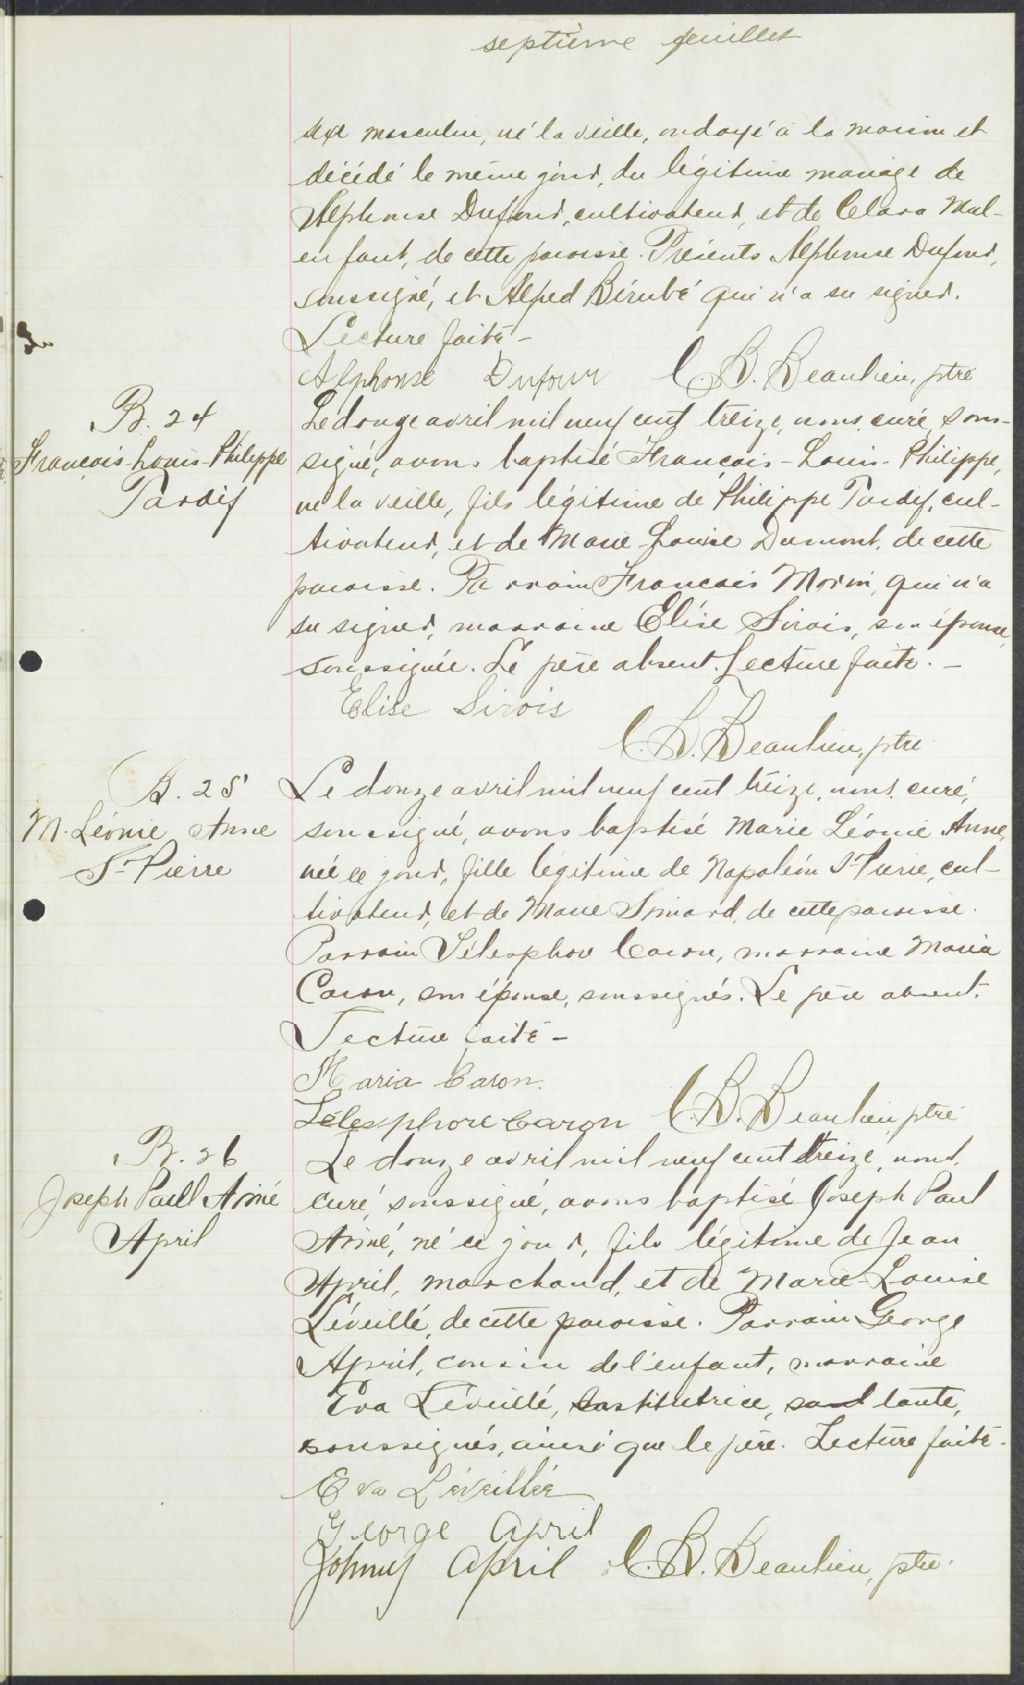 septième feuillet
sexe masculin, né la veille, ondoyé à la maison et
décédé le même jour, du légitime mariage de
Alphonse Dufour, cultivateur, et de Clara Mal-
enfant, de cette paroisse. Présents Alphonse Dufour,
soussigné, et Alfred Bérubé qui n'a su signer.
Lecture faite -
Alphonse Dufour C. B. Beaulieu, ptre
B. 24
François-Louis-Philippe
Tardif
Le douze avril mil neuf cent treize, nous, curé, sous-
signé, avons baptisé François-Louis-Philippe,
né la veille, fils légitime de Philippe Tardif, cul-
tivateur, et de Marie Louise Dumont, de cette
paroisse. Parrain François Morin, qui n'a
su signer, marraine Elise Sirois, son épouse,
soussignée. Le père absent. Lecture faite. -
Elise Sirois
C. B. Beaulieu, ptre
B. 25
M. Léonie Anne
St-Pierre
Le douze avril mil neuf cent treize, nous, curé,
soussigné, avons baptisé Marie Léonie Anne,
née ce jour, fille légitime de Napoléon St-Pierre, cul-
tivateur, et de Marie Simard, de cette paroisse.
Parrain Télesphore Caron, marraine Maria
Caron, son épouse, soussignés. Le père absent.
Lecture faite -
Maria Caron.
Télesphore Caron C. B. Beaulieu, ptre
B. 26
Joseph Paul Aimé
April
Le douze avril mil neuf cent treize, nous,
curé, soussigné, avons baptisé Joseph Paul
Aimé, né ce jour, fils légitime de Jean
April, marchand, et de Marie-Louise
Léveillé, de cette paroisse. Parrain George
April, cousin de l'enfant, marraine
Eva Léveillé, institutrice, sa tante,
soussignés, ainsi que le père. Lecture faite -
Eva Léveillée
George April
Johnny April C. B. Beaulieu, ptre.